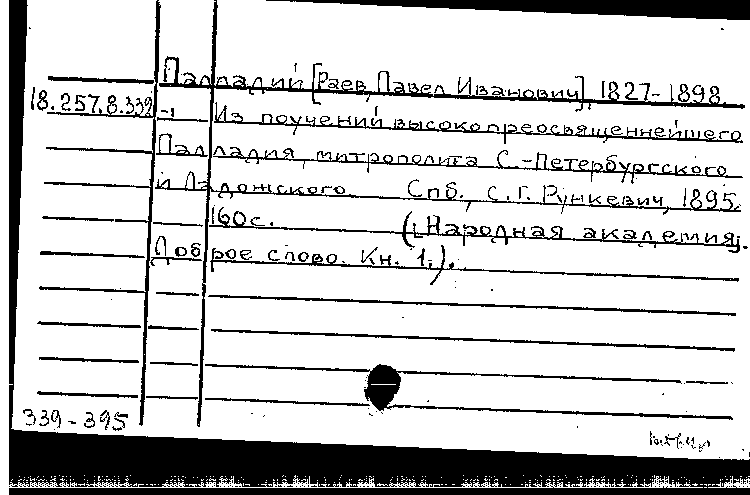 Палладий [Раев, Павел Иванович], 1827-1898.
18.257.8.339 -, Из поучений высокопреосвященнейшего
Палладия, митрополита С.-Петербургского
и Ладожского. Спб., С.Г. Рункевич, 1895.
160с. ([Народная академия].
Доброе слово. Кн. 1.).
339-395